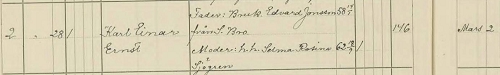 Fader: Bruk Edvard Jonsson 58
2 . 28/ Karl Einar från S. Bro 146 Mars 2
Ernst Moder: h.h. Selma Rosina 62
Sjögren